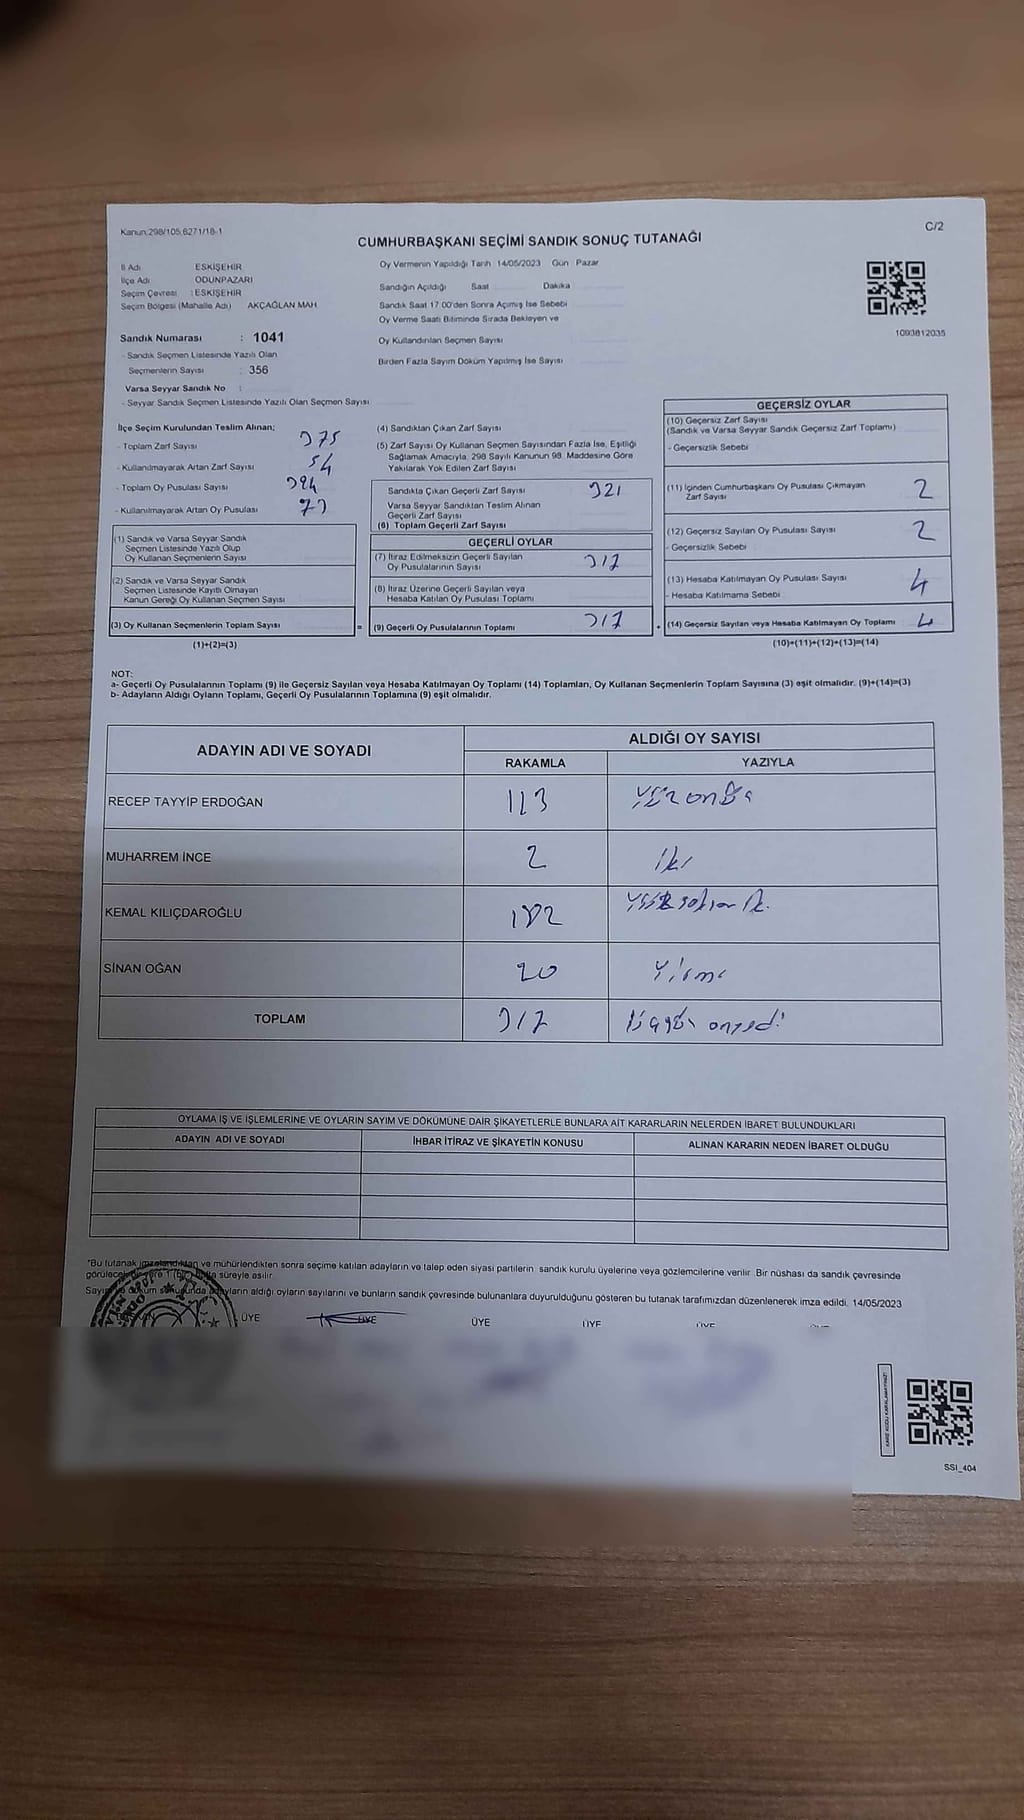 Kanun:298/105,6271/18-1
C/2
CUMHURBAŞKANI SEÇİMİ SANDIK SONUÇ TUTANAĞI
İl Adı ESKİŞEHİR
İlçe Adı ODUNPAZARI
Seçim Çevresi : ESKİŞEHİR
Seçim Bölgesi (Mahalle Adı) AKÇAĞLAN MAH.
Sandık Numarası : 1041
- Sandık Seçmen Listesinde Yazılı Olan
Seçmenlerin Sayısı : 356
Varsa Seyyar Sandık No :
- Seyyar Sandık Seçmen Listesinde Yazılı Olan Seçmen Sayısı
Oy Vermenin Yapıldığı Tarih 14/05/2023 Gün Pazar
Sandığın Açıldığı Saat Dakika
Sandık Saat 17.00'den Sonra Açımış İse Sebebi
Oy Verme Saati Bitiminde Sırada Bekleyen ve
Oy Kullandırılan Seçmen Sayısı
Birden Fazla Sayım Döküm Yapılmış İse Sayısı
1093812035
İlçe Seçim Kurulundan Teslim Alınan;
- Toplam Zarf Sayısı 375
- Kullanılmayarak Artan Zarf Sayısı 54
- Toplam Oy Pusulası Sayısı 394
- Kullanılmayarak Artan Oy Pusulası 73
(1) Sandık ve Varsa Seyyar Sandık
Seçmen Listesinde Yazılı Olup
Oy Kullanan Seçmenlerin Sayısı
(2) Sandık ve Varsa Seyyar Sandık
Seçmen Listesinde Kayıtlı Olmayan
Kanun Gereği Oy Kullanan Seçmen Sayısı
(3) Oy Kullanan Seçmenlerin Toplam Sayısı =
(1)+(2)=(3)
(4) Sandıktan Çıkan Zarf Sayısı
(5) Zarf Sayısı Oy Kullanan Seçmen Sayısından Fazla İse, Eşitliği
Sağlamak Amacıyla, 298 Sayılı Kanunun 98. Maddesine Göre
Yakılarak Yok Edilen Zarf Sayısı
Sandıkta Çıkan Geçerli Zarf Sayısı 321
Varsa Seyyar Sandıktan Teslim Alınan
Geçerli Zarf Sayısı
(6) Toplam Geçerli Zarf Sayısı
GEÇERLİ OYLAR
(7) İtiraz Edilmeksizin Geçerli Sayılan
Oy Pusulalarının Sayısı 317
(8) İtiraz Üzerine Geçerli Sayılan veya
Hesaba Katılan Oy Pusulası Toplamı
(9) Geçerli Oy Pusulalarının Toplamı 317 +
GEÇERSİZ OYLAR
(10) Geçersiz Zarf Sayısı
(Sandık ve Varsa Seyyar Sandık Geçersiz Zarf Toplamı)
- Geçersizlik Sebebi
(11) İçinden Cumhurbaşkanı Oy Pusulası Çıkmayan
Zarf Sayısı 2
(12) Geçersiz Sayılan Oy Pusulası Sayısı 2
- Geçersizlik Sebebi
(13) Hesaba Katılmayan Oy Pusulası Sayısı 4
- Hesaba Katılmama Sebebi
(14) Geçersiz Sayılan veya Hesaba Katılmayan Oy Toplamı 4
(10)+(11)+(12)+(13)=(14)
NOT:
a- Geçerli Oy Pusulalarının Toplamı (9) ile Geçersiz Sayılan veya Hesaba Katılmayan Oy Toplamı (14) Toplamları, Oy Kullanan Seçmenlerin Toplam Sayısına (3) eşit olmalıdır. (9)+(14)=(3)
b- Adayların Aldığı Oyların Toplamı, Geçerli Oy Pusulalarının Toplamına (9) eşit olmalıdır.
ADAYIN ADI VE SOYADI ALDIĞI OY SAYISI
RAKAMLA YAZIYLA
RECEP TAYYİP ERDOĞAN 113 Yüz onüç
MUHARREM İNCE 2 iki
KEMAL KILIÇDAROĞLU 182 Yüz seksen iki
SİNAN OĞAN 20 Yirmi
TOPLAM 317 Üçyüz onyedi
OYLAMA İŞ VE İŞLEMLERİNE VE OYLARIN SAYIM VE DÖKÜMÜNE DAİR ŞİKAYETLERLE BUNLARA AİT KARARLARIN NELERDEN İBARET BULUNDUKLARI
ADAYIN ADI VE SOYADI İHBAR İTİRAZ VE ŞİKAYETİN KONUSU ALINAN KARARIN NEDEN İBARET OLDUĞU
*Bu tutanak imzalandıktan ve mühürlendikten sonra seçime katılan adayların ve talep eden siyasi partilerin, sandık kurulu üyelerine veya gözlemcilerine verilir. Bir nüshası da sandık çevresinde
görülecek bir yere 1 (bir) hafta süreyle asılır.
Sayım ve döküm sonucunda adayların aldığı oyların sayılarını ve bunların sandık çevresinde bulunanlara duyurulduğunu gösteren bu tutanak tarafımızdan düzenlenerek imza edildi. 14/05/2023
ÜYE ÜYE ÜYE ÜYE ÜYE
KARE KODU KARALAMAYINIZ!
SSI_404